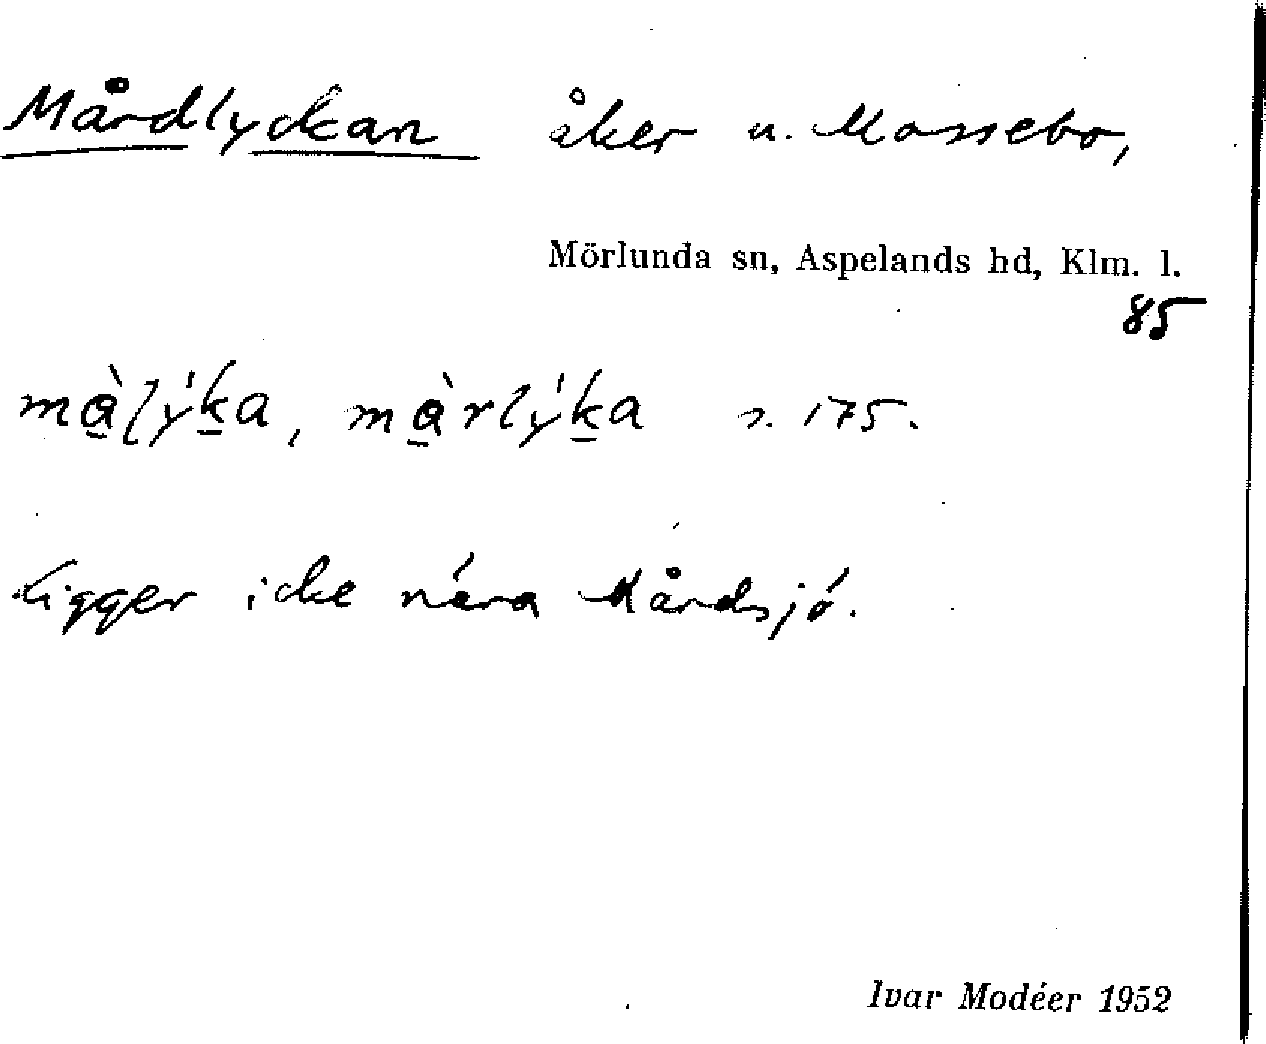 Mårdlyckan åker u. Mossebo,
Mörlunda sn, Aspelands hd, Klm. l.
85
mὰ̲ɭy̍k̲a, mὰ̲rly̍k̲a n. 175.
Ligger icke nära Mårdsjö.
Ivar Modéer 1952